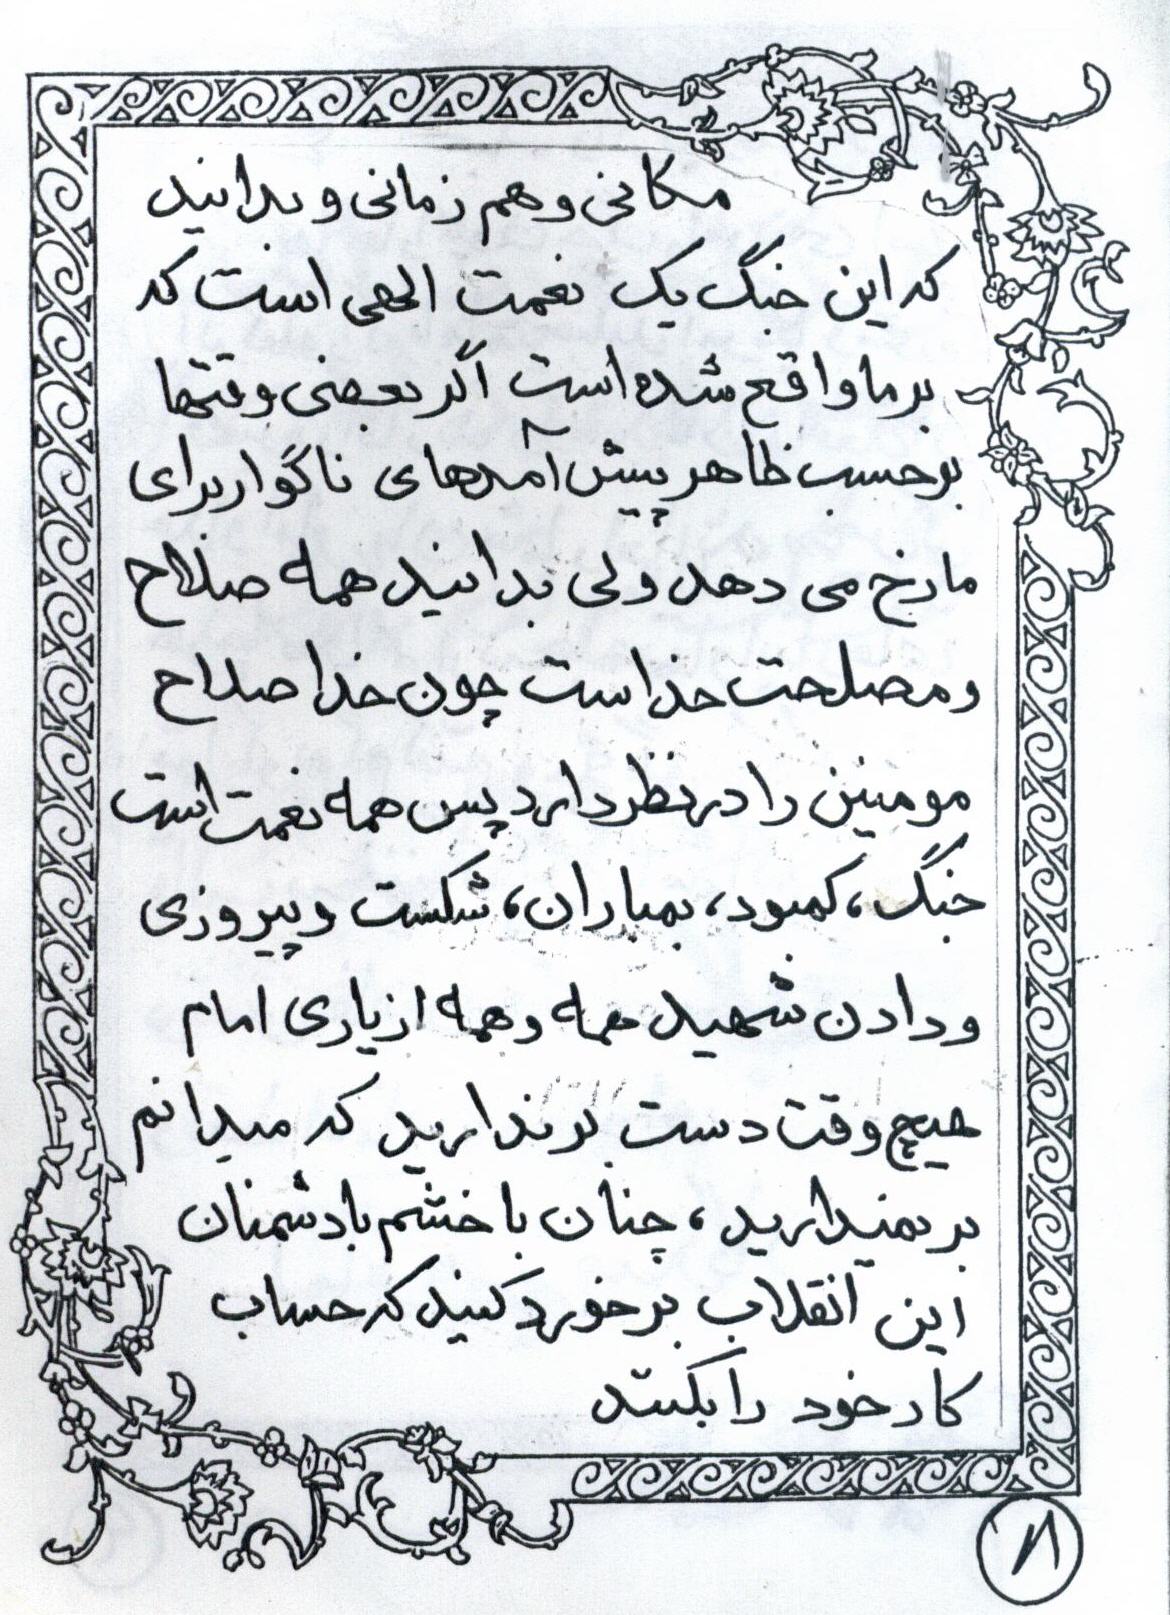 مکانی و هم زمانی و بدانید
که این جنگ یک نعمت الهی است که
بر ما واقع شده است اگر بعضی وقتها
برحسب ظاهر پیش آمدهای ناگوار برای
ما رخ می دهد ولی بدانید همه صلاح
و مصلحت خداست چون خدا صلاح
مومنین را در نظر دارد پس همه نعمت است
جنگ، کمبود، بمباران، شکست و پیروزی
و دادن شهید همه و همه از یاری امام
هیچ وقت دست برندارید که میدانم
بر نمیدارید، چنان با خشم با دشمنان
این انقلاب برخورد کنید که حساب
کار خود را بکنند
۸